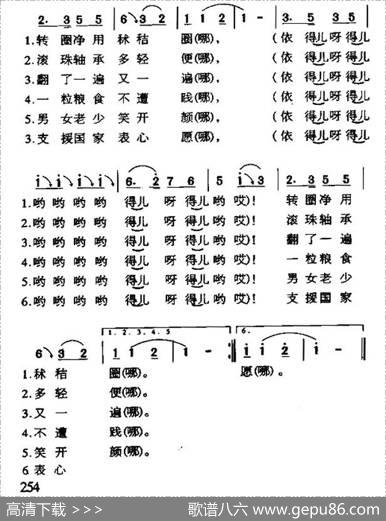 2. 3 5 5 6 3 2 1 1 2 1 - 3. 5 3 5
1.转圈净用秫秸圈(哪), (依得儿呀得儿
2.滚珠轴承多轻便(哪), (依得儿呀得儿
3.翻了一遍又一遍(哪), (依得儿呀得儿
4.一粒粮食不遭践(哪), (依得儿呀得儿
5.男女老少笑开颜(哪), (依得儿呀得儿
3.支援国家表心愿(哪), (依得儿呀得儿
i i i i 6. 2 7 6 5 i 3 2. 3 5 5
1.哟哟哟哟得儿呀得儿哟哎)! 转圈净用
2.哟哟哟哟得儿呀得儿哟哎)! 滚珠轴承
3.哟哟哟哟得儿呀得儿哟哎)! 翻了一遍
4.哟哟哟哟得儿呀得儿哟哎)! 一粒粮食
5.哟哟哟哟得儿呀得儿哟哎)! 男女老少
6.哟哟哟哟得儿呀得儿哟哎)! 支援国家
1. 2. 3. 4. 5 6.
6 3 2 1 1 2 1 - :‖ i i 2 i - ‖
1.秫秸圈(哪)。 愿(哪)。
2.多轻便(哪)。
3.又一遍(哪)。
4.不遭践(哪)。
5.笑开颜(哪)。
6.表心
254
高清下载 > > 歌谱八六 www.gepu86.com